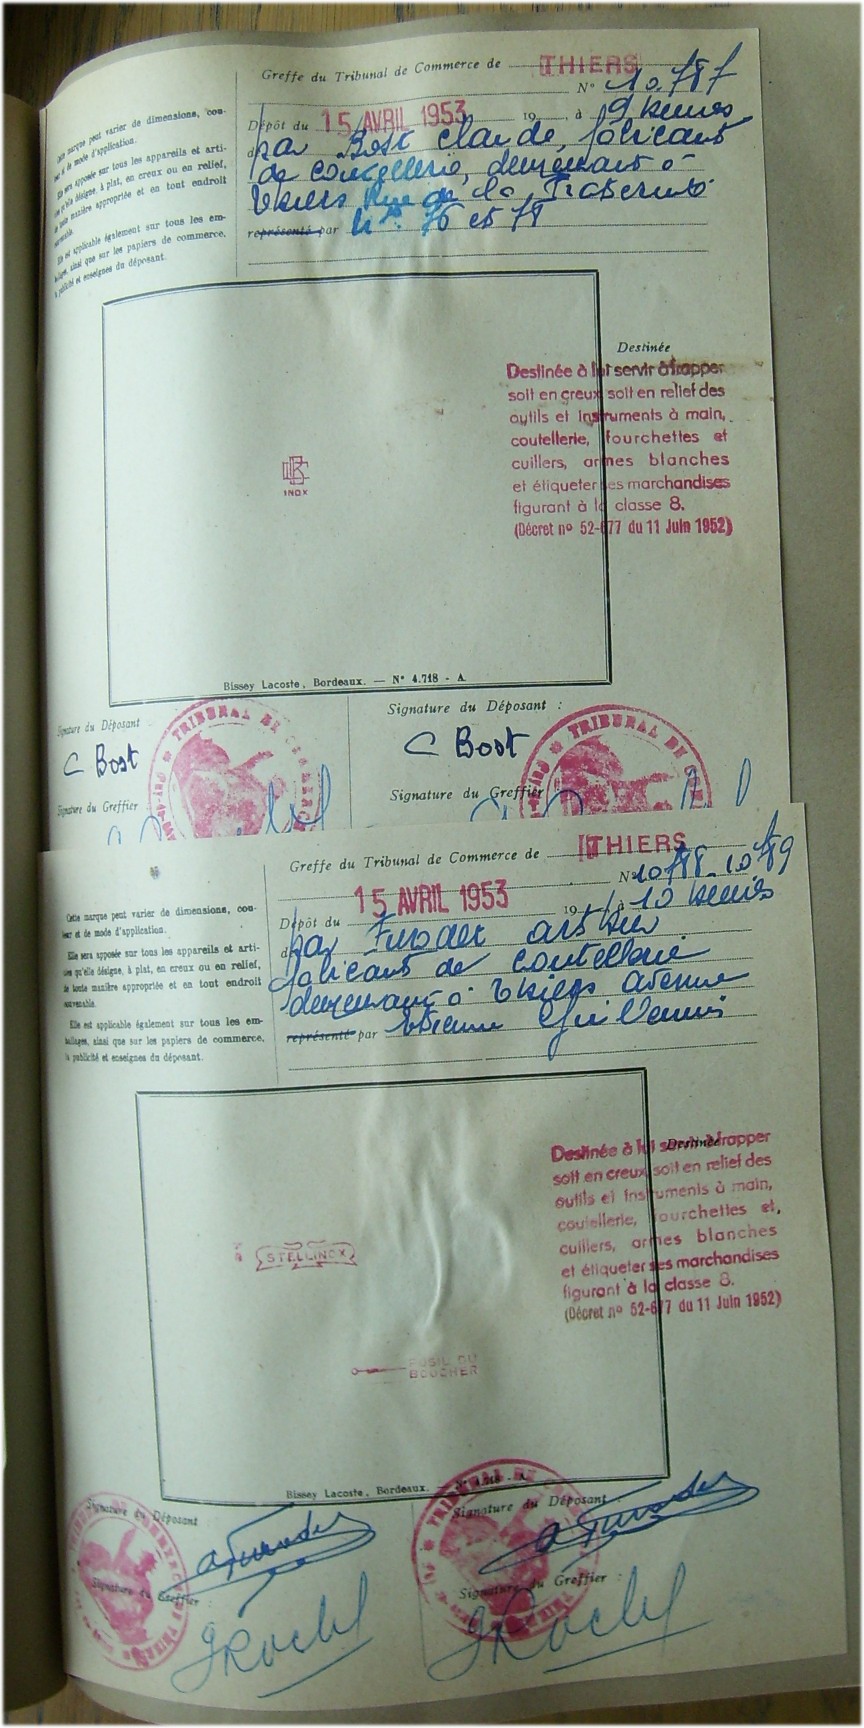 Greffe du Tribunal de Commerce de THIERS
N° 10.787
Dépôt du 15 AVRIL 1953 19 , à 9 heures
par Bost Claude, fabricant
de coutellerie, demeurant à
Thiers Rue de la Fraternité
représenté par N° 76 et 78
Cette marque peut varier de dimensions, cou-
leur et de mode d'application.
Elle sera apposée sur tous les appareils et arti-
cles qu'elle désigne, à plat, en creux ou en relief,
de toute manière appropriée et en tout endroit
convenable.
Elle est applicable également sur tous les em-
ballages, ainsi que sur les papiers de commerce,
la publicité et enseignes du déposant.
INOX
Destinée
Destinée à lui servir à frapper
soit en creux soit en relief des
outils et instruments à main,
coutellerie, fourchettes et
cuillers, armes blanches
et étiqueter ses marchandises
figurant à la classe 8.
(Décret n° 52-677 du 11 Juin 1952)
Bissey Lacoste, Bordeaux. — N° 4.718 - A
Signature du Déposant
C Bost
Signature du Greffier
Signature du Déposant :
C Bost
Signature du Greffier
TRIBUNAL DE COMMERCE
TRIBUNAL DE
Greffe du Tribunal de Commerce de THIERS
N° 10788-10789
Dépôt du 15 AVRIL 1953 19 , à 10 heures
par Furodet
fabricant de coutellerie
demeurant à Thiers avenue
représenté par Etienne Guillaumin
Cette marque peut varier de dimensions, cou-
leur et de mode d'application.
Elle sera apposée sur tous les appareils et arti-
cles qu'elle désigne, à plat, en creux ou en relief,
de toute manière appropriée et en tout endroit
convenable.
Elle est applicable également sur tous les em-
ballages, ainsi que sur les papiers de commerce,
la publicité et enseignes du déposant.
STELLINOX
FUSIL DU
BOUCHER
Destinée
Destinée à lui servir à frapper
soit en creux soit en relief des
outils et instruments à main,
coutellerie, fourchettes et,
cuillers, armes blanches
et étiqueter ses marchandises
figurant à la classe 8.
(Décret n° 52-677 du 11 Juin 1952)
Bissey Lacoste, Bordeaux. — N° 4.718 - A
Signature du Déposant
Signature du Greffier :
Signature du Déposant :
Signature du Greffier :
TRIBUNAL DE COMMERCE
TRIBUNAL DE